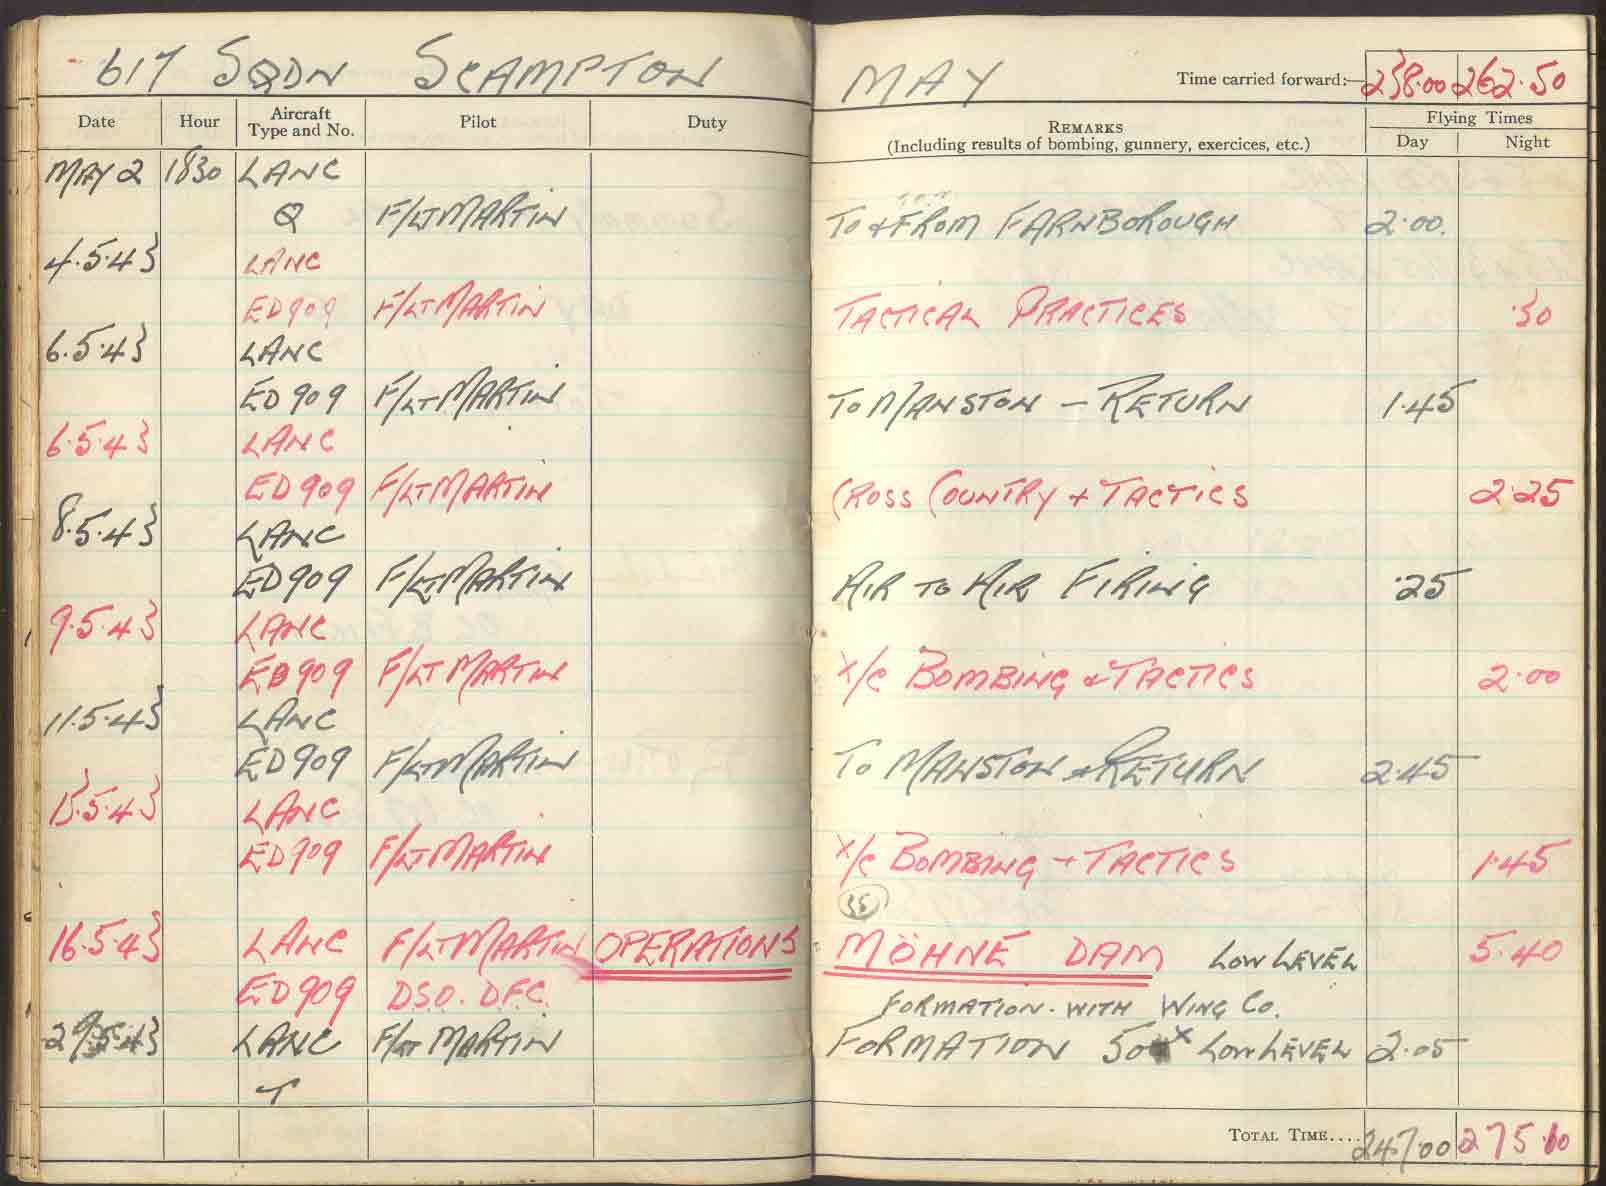 617 SQDN SCAMPTON
MAY Time carried forward:— 238.00 262.50
Date Hour Aircraft Type and No. Pilot Duty REMARKS (Including results of bombing, gunnery, exercices, etc.) Flying Times Day Night
MAY 2 1830 LANC
Q F/LT MARTIN TO & FROM FARNBOROUGH 2.00.
4.5.43 LANC
ED909 F/LT MARTIN TACTICAL PRACTICES .30
6.5.43 LANC
ED909 F/LT MARTIN TO MANSTON – RETURN 1.45
6.5.43 LANC
ED909 F/LT MARTIN CROSS COUNTRY + TACTICS 2.25
8.5.43 LANC
ED909 F/LT MARTIN AIR TO AIR FIRING .25
9.5.43 LANC
ED909 F/LT MARTIN X/C BOMBING & TACTICS 2.00
11.5.43 LANC
ED909 F/LT MARTIN TO MANSTON & RETURN 2.45
.5.43 LANC
ED909 F/LT MARTIN X/C BOMBING + TACTICS 1.45
35
16.5.43 LANC F/LT MARTIN OPERATIONS MÖHNE DAM LOW LEVEL 5.40
ED909 D.S.O. D.F.C. FORMATION. WITH WING CO.
29.5.43 LANC F/LT MARTIN FORMATION 50 X LOW LEVEL 2.05
T
TOTAL TIME.... 247.00 275.10